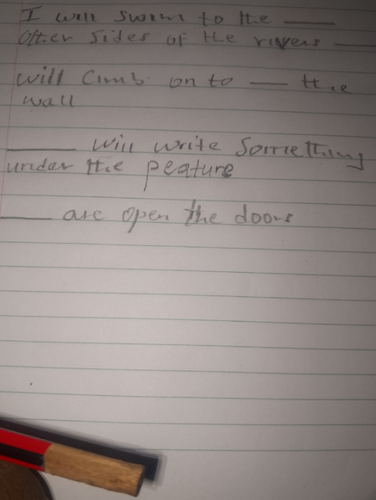 I will swim to the ___
Other sides of the rivers ___
will Cimb on to ___ the
wall
___ will write Something
under the peature
___ are open the doors